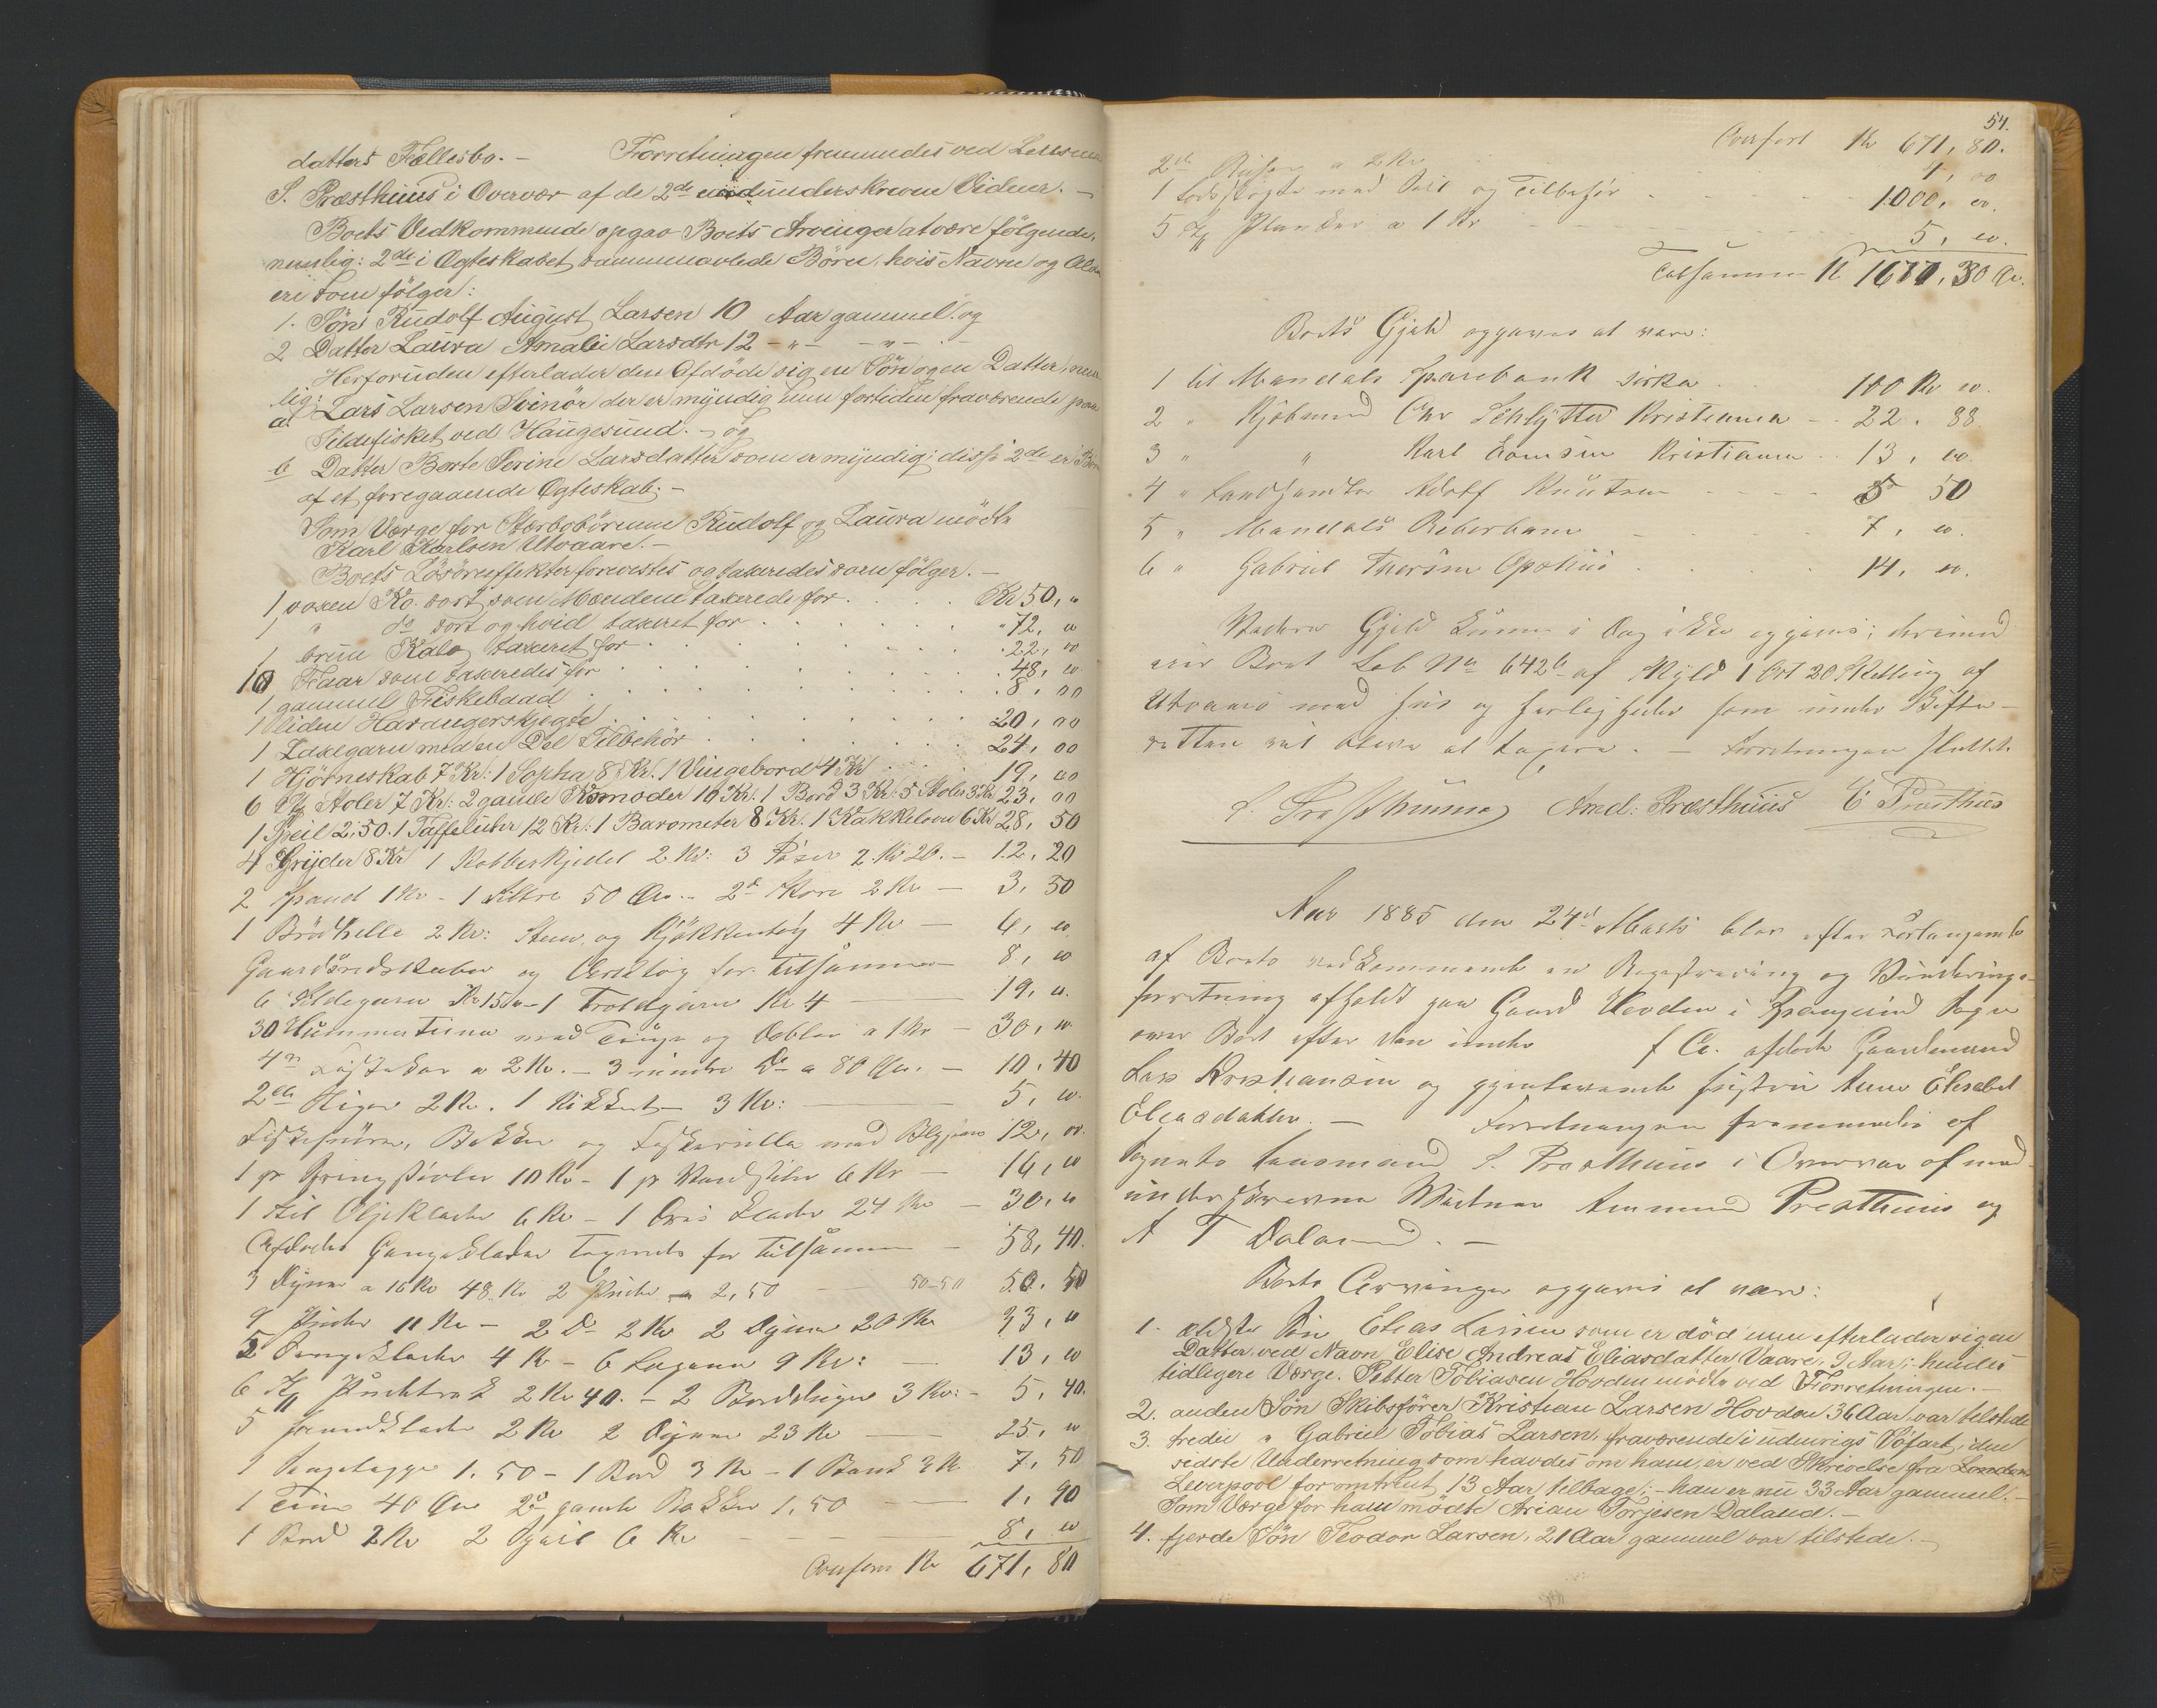 datters Fællesbo. — Forretningen fremmedes ved Lensm
S. Præsthuus i Overvær af de 2de medunderskrevne Vidner. —
Boets Vedkommende opgav Boets Arvinger at være følgende,
nemlig: 2de i Ægteskabet sammenavlede Børn, hvis Navne og Alder
ere som følger:
1. Søn Rudolf August Larsen 10 Aar gammel. og
2 Datter Laura Amalie Larsdtr 12 — " — — " —
Herforuden efterlader den Afdøde sig en Søn og en Datter, nem
lig:
a Lars Larsen Svinør der er myndig men fortiden fraværende paa
Sildefisket ved Haugesund. — og
b Datter Berte Serine Larsdatter som er myndig; disse 2de er Børn
af et foregaaende Ægteskab. —
Som Værge for Stærbobørnene Rudolf og Laura mødte
Karl Karlsen Utvaare. —
Boets Løsøreeffekter forevistes og taxeredes som følger. —
1 voxen Ko sort som Mændene taxerede for Kr 50, "
1 " do sort og hvid taxeret for " 72, "
1 brun Kalv taxeret for 22, 00
10 Faar som taxeredes for 48, "
1 gammel Fiskebaad 8, 00
1 liden Hardangerskjegte 20, 00
1 Laxegarn med en Del Tilbehør 24, 00
1 Hjørneskab 7 Kr: 1 Sopha 8 Kr. 1 Vingebord 4 Kr 19, 00
6 St Stoler 7 Kr: 2 gamle Komoder 10 Kr: 1 Bord 3 Kr: 5 Stoler 3 Kr 23, 00
1 Speil 2,50. 1 Taffeluhr 12 Kr: 1 Barometer 8 Kr. 1 Kakkelovn 6 Kr 28, 50
4 Gryder 8 Kr 1 Kobberkjedel 2 Kr: 3 Poser 2 Kr 20. — 12, 20
2 Spand 1 Kr - 1 Filtre 50 Øre - 2d Kore 2 Kr — 3, 50
1 Brødhelle 2 Kr: Sten og Kjøkkentøy 4 Kr — 6, "
Gaardsredskaber og Verktøy for tilsammen 8, "
6 Sildegarn Kr 15 " - 1 Troldgarn Kr 4 — 19, "
30 Hummertiner med Tauge og Dobler a 1 Kr — 30, "
4re a 2 Kr. — 3 mindre Do a 80 Øre. — 10, 40
2de 2 Kr. 1 Kikkert 3 Kr: — 5, "
Fiskesnører, Bakker og med 12, 00
1 pr 10 Kr - 1 pr 6 Kr — 16, "
1 sæt Oljeklæder 6 Kr - 1 Klæder 24 Kr — 30, "
Afdødes Gangklæder for tilsammen — 58, 40
3 Dyner a 16 Kr 48 Kr 2 Puder a 2,50 — 50-50 50. 50
9 Puder 11 Kr — 2 Do 2 Kr 2 Dyner 20 Kr 33, "
5 Sengeklæder 4 Kr - 6 Lagener 9 Kr: — 13, "
6 St Pudetræk 2 Kr 40. - 2 Borddúger 3 Kr: - 5, 40.
5 2 Kr 2 Dyner 23 Kr — 25, "
1 Sengetæppe 1. 50 - 1 Bord 3 Kr - 1 Bænk 3 Kr 7, 50
1 Tine 40 Øre 2d gamle Bakker 1, 50 — 1, 90
1 Bord 2 Kr 2 Speil 6 Kr 8, "
Overføres Kr 671, 80
54.
Overført Kr 671, 80.
2de Ruser a 2 Kr 4, 00
1 Lodsskøgte med Seil og Tilbehør 1000, "
5 St Planker a 1 Kr 5, "
Tilsammen Kr 1680, 80 Ør.
Boets Gjeld opgaves at være:
1 til Mandals Sparebank sirka 100 Kr "
2 " Kjøbmand Chr Schlytter Kristiania — 22. 88
3 " " Karl Kristiania 13, "
4 " Landhandler Adolf Knutsen 5 50
5 " Mandals Reberbane 7, "
6 " Gabriel Thorsen Opøhus 14, "
Videre Gjeld kunne i Dag ikke opgives; derimod
eier Boet Løb No 642b af Skyld 1 Ort 20 Skilling af
Utvaare med Huse og Herligheder som under Skifte-
retten vil blive at taxere. — Forretningen sluttet.
S. Præsthuus Amd: Præsthuus E Præsthus
Aar 1885 den 24de Marts blev efter Forlangende
af Boets vedkommende en Registrering og Vurderings-
forretning afholdt paa Gaard Hovden i Spangereid Sogn
over Boet efter den under f Ce. afdøde Gaardmand
Lars Kristiansen og gjenlevende Hustru Anne Elisabet
Eleasdatter. — Forretningen fremmedes af
Sognets Lensmand S. Præsthuus i Overvær af med-
underskrevne Vidner Ammund Præsthuus og
A T Daland. —
Boets Arvinger opgaves at være:
1. ældste Søn Elias Larsen som er død men efterlader sig en
Datter ved Navn Elise Andreas Eliasdatter Vaare, 9 Aar; hendes
tidligere Værge. Petter Tobiasen Hovden mødte ved Forretningen. —
2. anden Søn Skibsfører Kristian Larsen Hovden 36 Aar var tilstede
3. tredie " Gabriel Tobias Larsen, fraværende i udenrigs Søfart; den
sidste Underretning som havdes om ham, er ved Skrivelse fra London
Leverpool for omtrent 13 Aar tilbage; — han er nu 33 Aar gammel. —
Som Værge for ham mødte Arian Torjesen Daland. —
4. fjerde Søn Teodor Larsen, 21 Aar gammel var tilstede. —